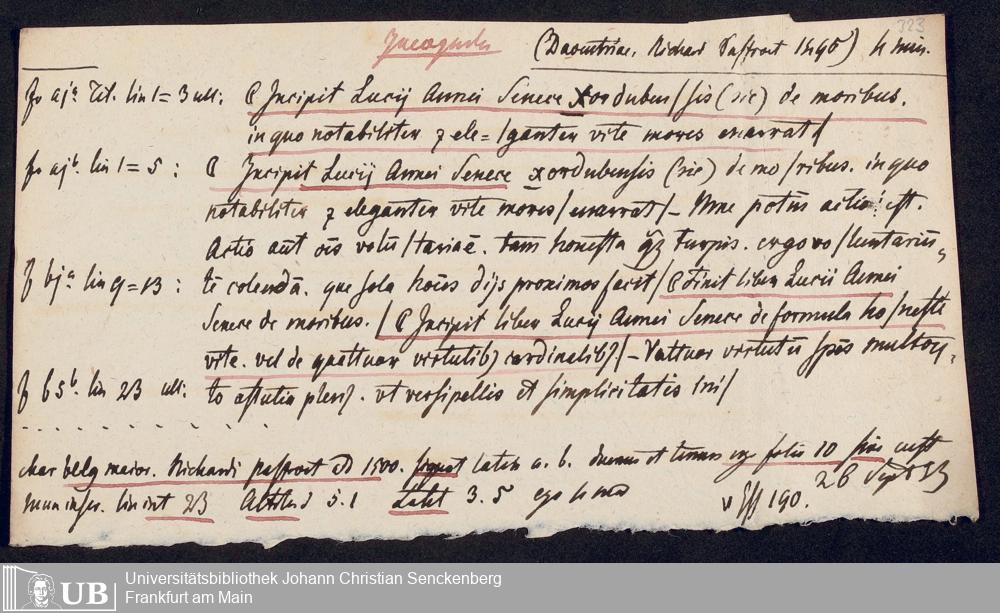 323
Incognita (Daventriae, Richard Paffroet 1496) 4 min.
fo aja Tit. lin 1=3 ult: Incipit Lucij Annei Senece xordubensis (sic) de moribus.
in quo notabiliter z ele=/ganter vite mores enarrat/
fo ajb. lin 1=5: Incipit Lucij Annei Senece xordubensis (sic) de mo/ribus. in quo
notabiliter z eleganter vite mores/enarrat/ - Mne potius actio: est.
Actio aut ois volū/tariaē. tam honesta turpis. ergo vo/luntariū=
f bja lin 9=13: tē colendā. que sola hoīes dijs proximos facit/ Finit liber Lucii Annei
Senece de moribus./ Incipit liber Lucij Annei Senece de formula ho/neste
vite. vel de quattuor virtutib3 cardinalib3/ - Vattuor virtutū spēs multorꝝ,
f b5b lin 23 ult: to astutia . vt versipellis et simplicitatis ini/
char belg maior. Richardi Paffroet ad 1500. signat a. b. et ternus folia 10 sine cust
num inser. lin int 23 Altit 5.1 Lat 3.5 ego 26 Sept 33
v Ess 190.
UB
Universitätsbibliothek Johann Christian Senckenberg
Frankfurt am Main